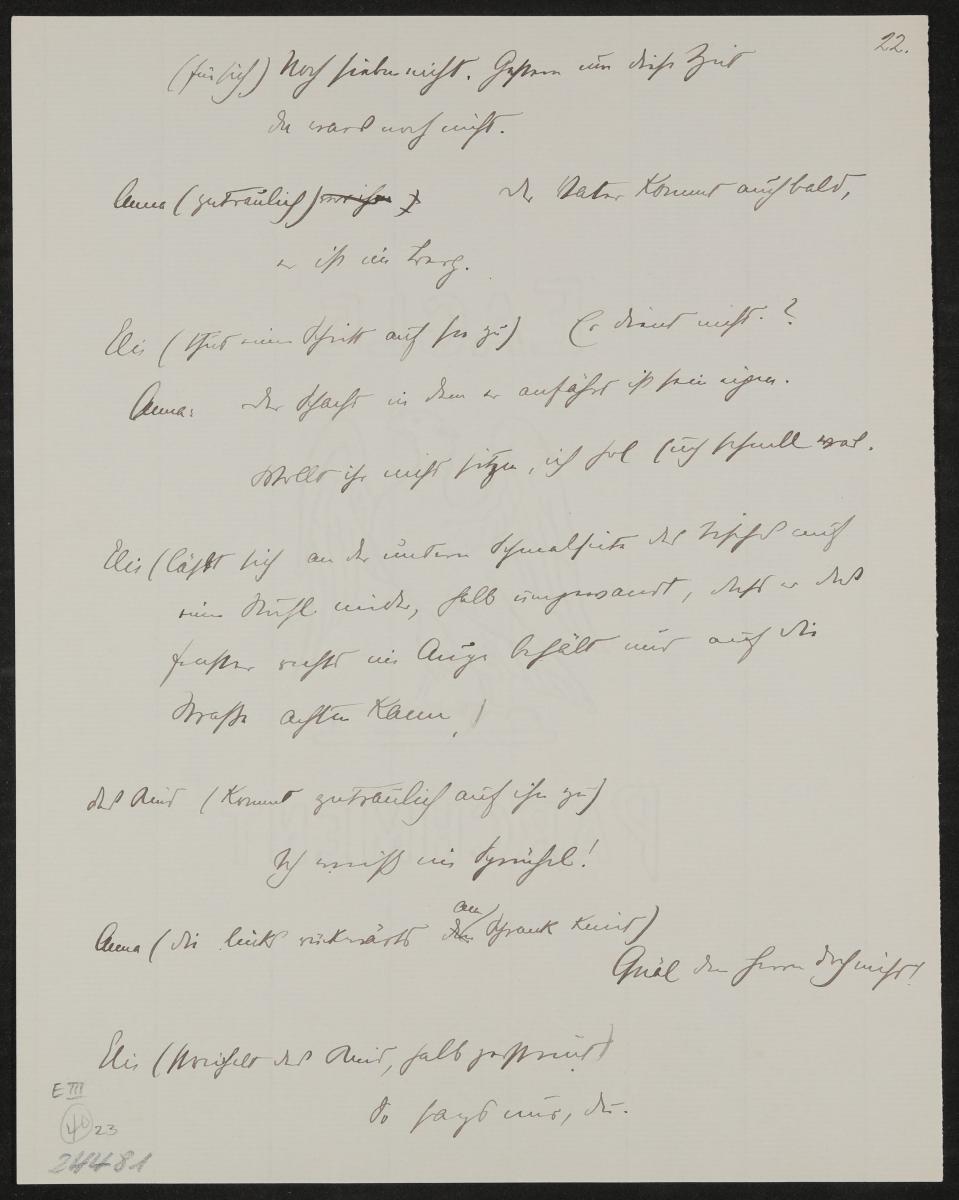 22.
(für sich) Noch sieben nicht. Gestern um diese Zeit
da ward noch nicht.
Anna (zutraulich) Der Vater kommt auch bald,
er ist im Berg.
Elis (thut einen Schritt auf sie zu) Er dient nicht?
Anna: Der Schacht in dem er anfährt ist sein eigen.
Wollt ihr nicht sitzen, ich hol Euch schnell was.
Elis (läßt sich an der untern Schmalseite des Tisches auf
einen Stuhl nieder, halb umgewandt, dass er das
Fenster rechts im Auge behält und auf die
Strasse achten kann)
das Kind (kommt zutraulich auf ihn zu)
Ich weiß ein Sprüchel!
Anna (die links rückwärts am Schrank kniet)
Quäl den Herrn doch nicht!
Elis (streichelt das Kind, halb zerstreut)
So sags nur, du.
E III
40 23
24481
EAGLE
PARCHMENT